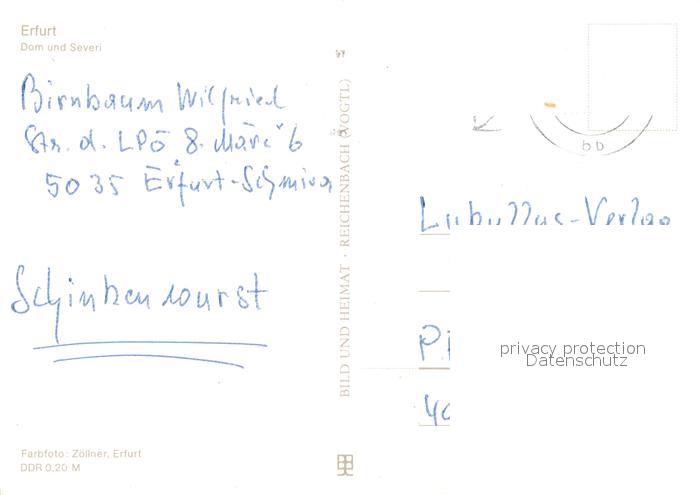 Erfurt
Dom und Severi
Birnbaum Wilfried
Str. d. LPG 8. März 6
5035 Erfurt-Schmira
Schinkenwurst
BILD UND HEIMAT · REICHENBACH (VOGTL)
Lukullus-Verlag
privacy protection
Datenschutz
bb
Farbfoto: Zöllner, Erfurt
DDR 0,20 M